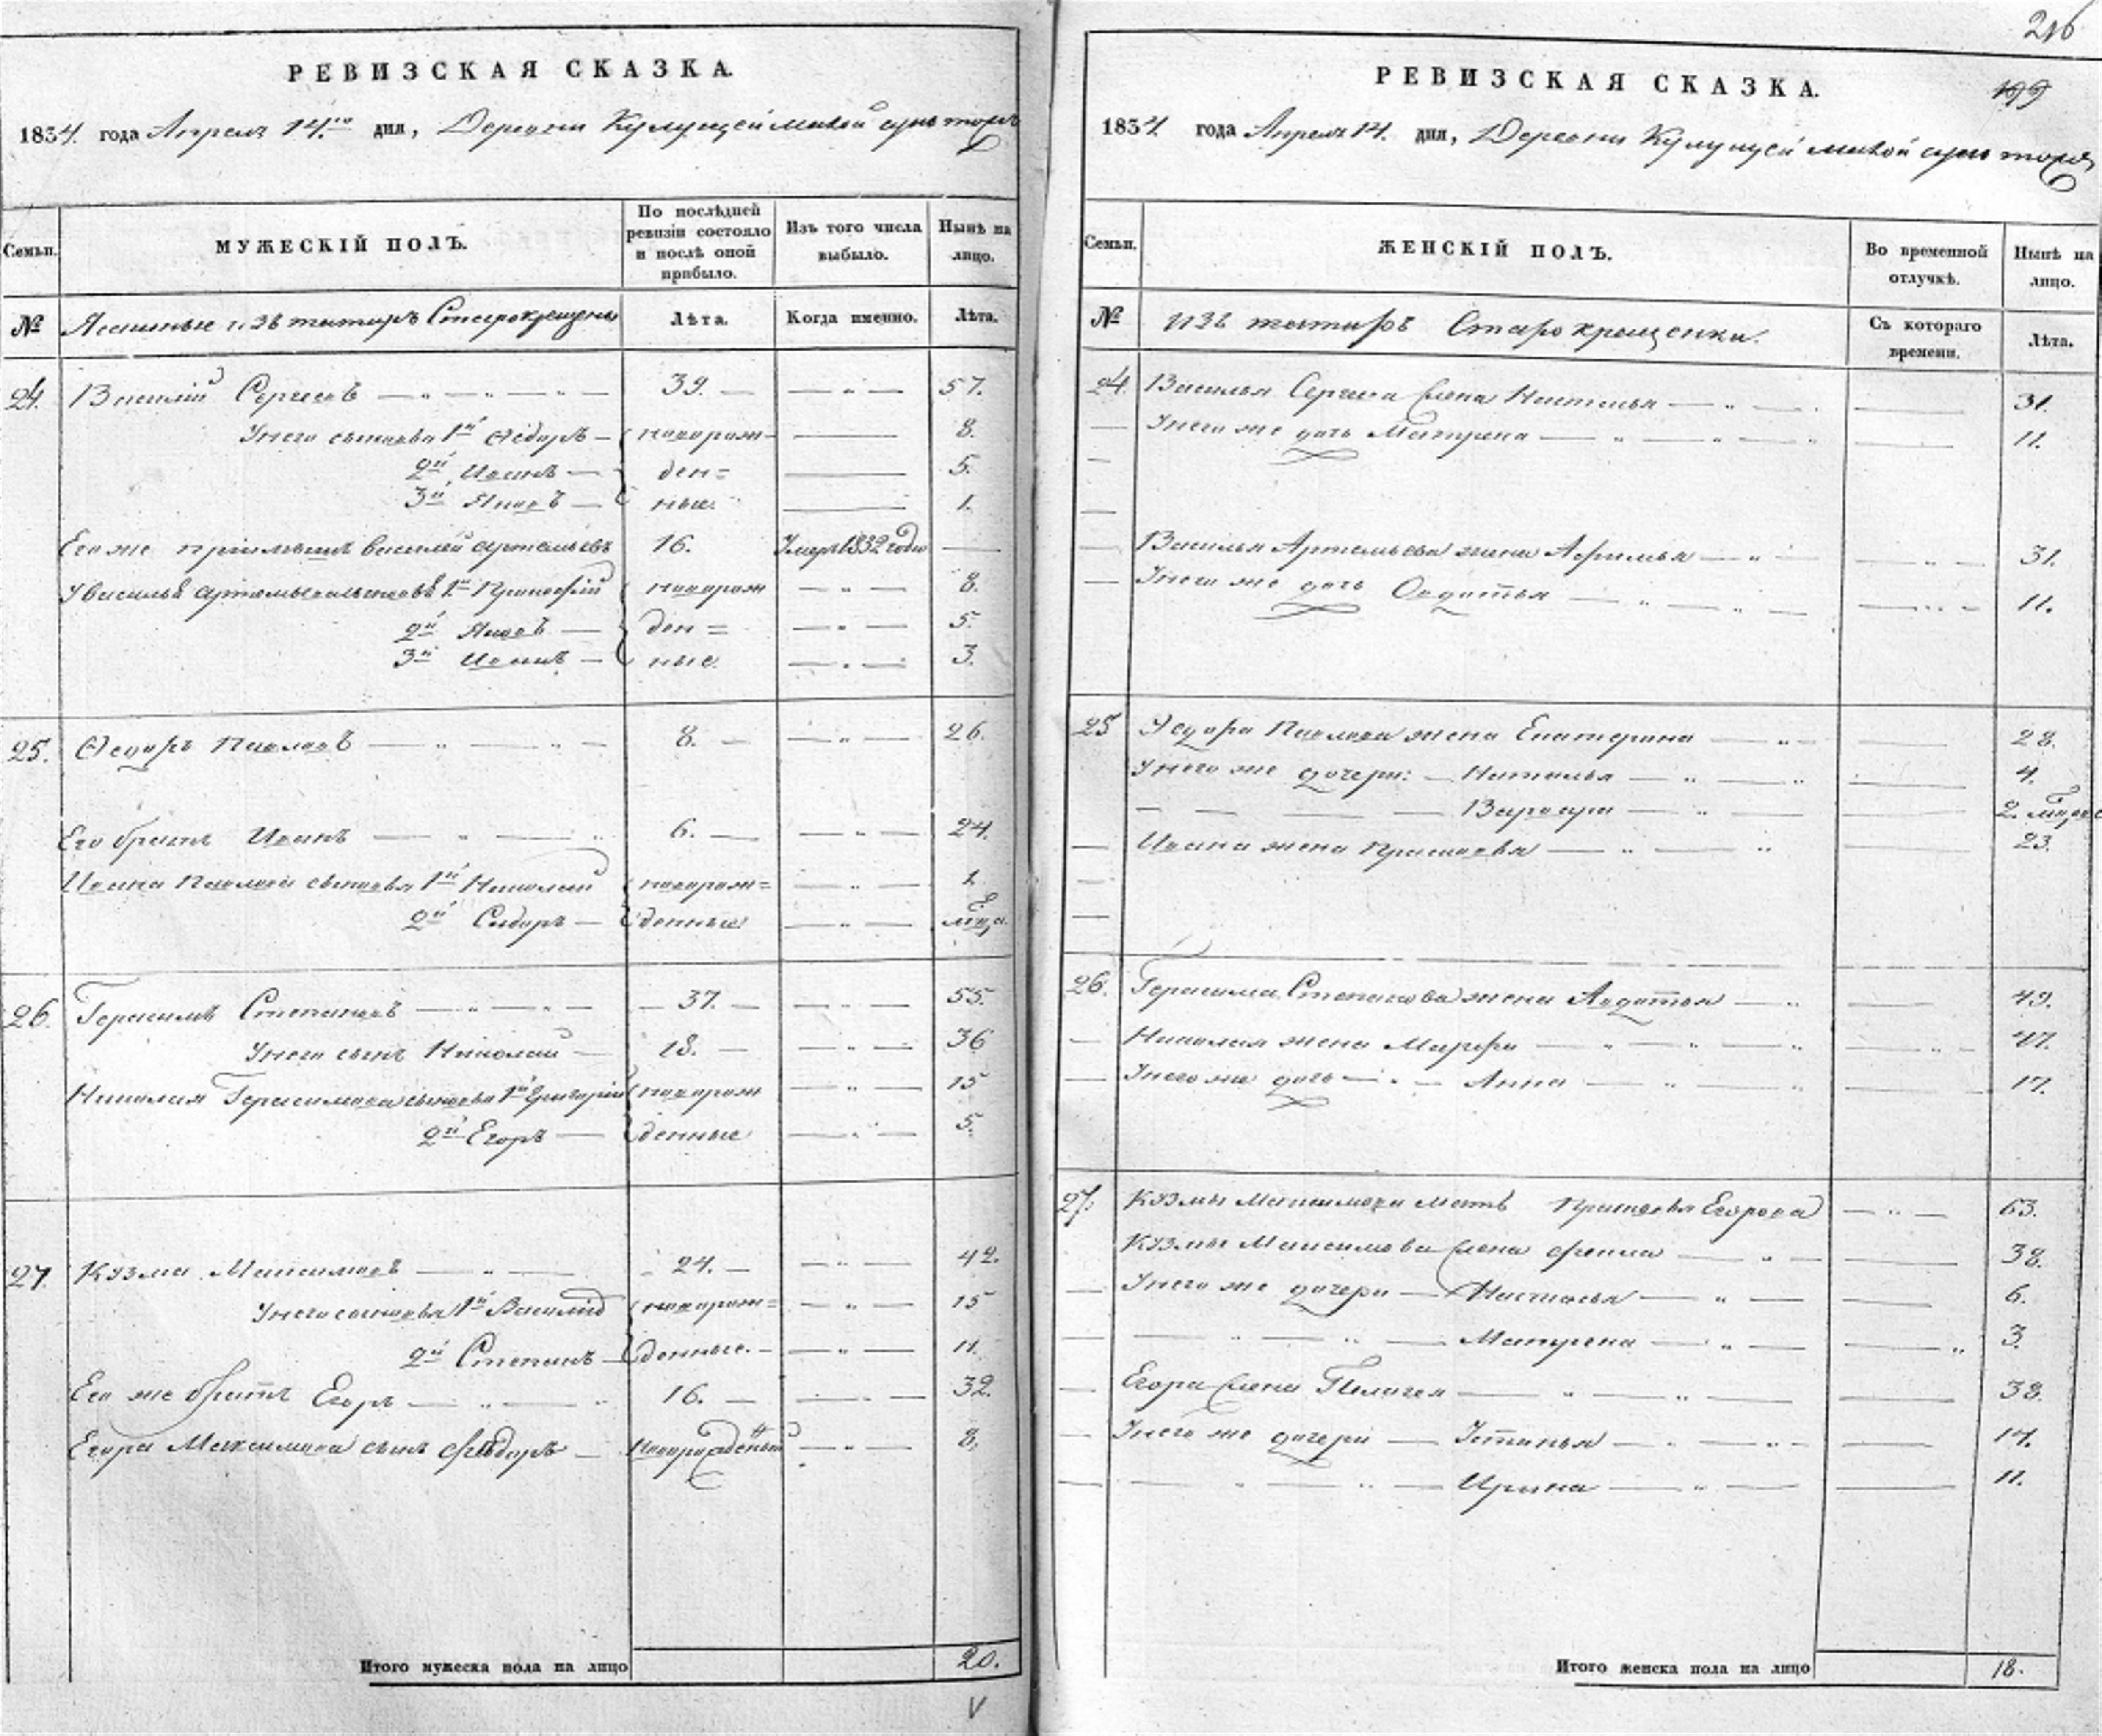 РЕВИЗСКАЯ СКАЗКА.
1834. года Апреля 14.го дня, Деревни
Семьи.
МУЖЕСКІЙ ПОЛЪ.
По послѣдней ревизіи состояло и послѣ оной прибыло.
Изъ того числа выбыло.
Нынѣ на лицо.
№
Ясашные изъ татаръ Старокрещены
Лѣта.
Когда именно.
Лѣта.
24. Василій Сергеевъ 39. 57.
У него сыновья 1й Ѳедоръ новорож- 8.
2й Иванъ ден= 5.
3й Яковъ ные. 1.
Его же пріемышъ василей артемьевъ 16. Умеръ 1832 года
У василья артемьева сыновья 1й Прокофій новорож 8.
2й Яковъ ден= 5.
3й Иванъ ные. 3.
25. Ѳедоръ Павловъ 8. 26.
Его братъ Иванъ 6. 24.
Ивана Павлова сыновья 1й Николай новорож= 1.
2й Сидоръ денные
26. Герасимъ Степановъ 37. 55.
У него сынъ Николай 18. 36
Николая Герасимова сыновья 1й Григорій новорож 15
2й Егоръ денные 5.
27. Кузма Максимовъ 24. 42.
У него сыновья 1й Василій новорож= 15
2й Степанъ денные. 11.
Его же братъ Егоръ 16. 32.
Егора Максимова сынъ новорожденый 8.
Итого мужеска пола на лицо 20.
V
216
199
РЕВИЗСКАЯ СКАЗКА.
1834. года Апреля 14. дня, Деревни
Семьи.
ЖЕНСКІЙ ПОЛЪ.
Во временной отлучкѣ.
Нынѣ на лицо.
№
изъ татаръ Старокрещенки.
Съ котораго времени.
Лѣта.
24. Василья Сергеева жена Наталья 31.
У него же дочь Матрена 11.
Василья Артемьева жена Афимья 31.
У него же дочь Овдотья 11.
25 Ѳедора Павлова жена Екатерина 28.
У него же дочери: Наталья 4.
Варвара 2.
Ивана жена Прасковья 23.
26. Герасима Степанова жена Авдотья 49.
Николая жена Марфа 47.
У него же дочь Анна 17.
27. Кузмы Максимова мать Прасковья Егорова 63.
Кузмы Максимова жена 38.
У него же дочери Настасья 6.
Матрена 3.
Егора жена Пелагея 38.
У него же дочери Устинья 14.
Ирина 11.
Итого женска пола на лицо 18.